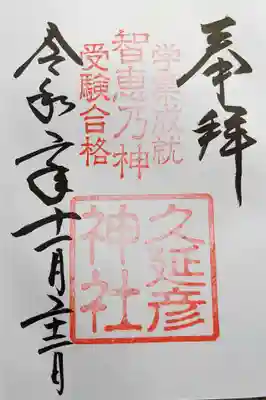 奉拝
学業成就
智恵乃神
受験合格
久延彦
神社
令和六年十一月二十三日